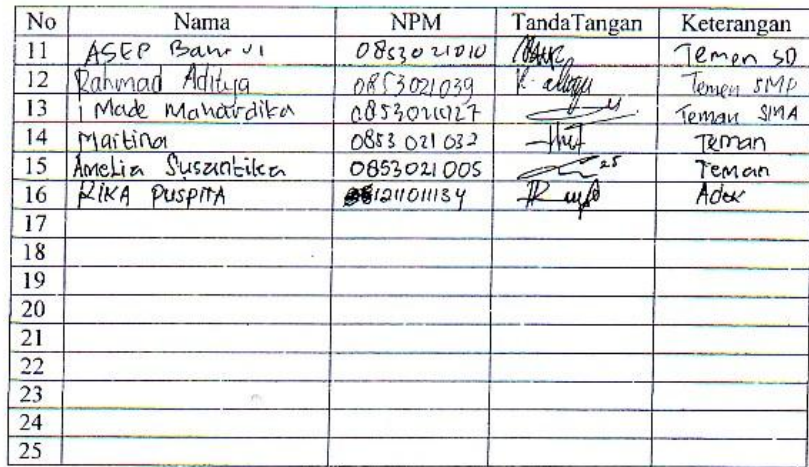 No Nama NPM TandaTangan Keterangan
11 ASEP 0853021010 Temen SD
12 Rahmad Aditya 0853021039 R. Temen SMP
13 I Made Mahardika Teman SMA
14 Martina 0853 021 032 Teman
15 Amelia Susantika 0853021005 25 Teman
16 RIKA PUSPITA 1211011134 Adek
17
18
19
20
21
22
23
24
25